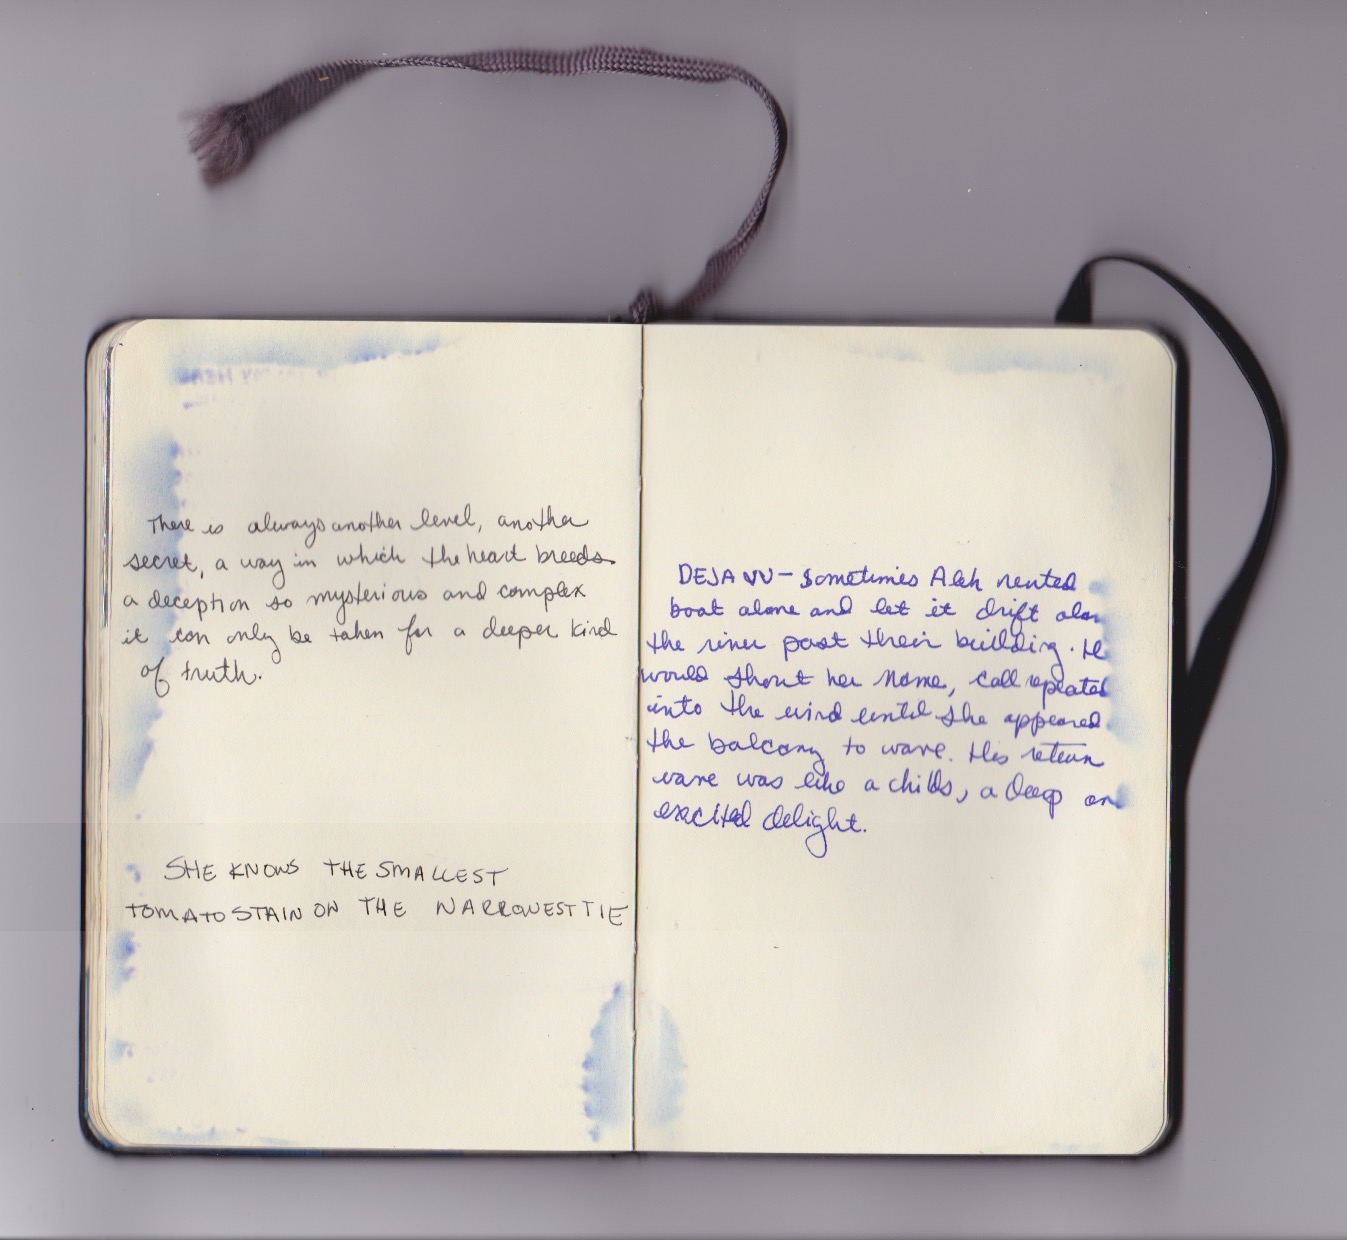 There is always another level, another
secret, a way in which the heart breeds
a deception so mysterious and complex
it can only be taken for a deeper kind
of truth.
SHE KNOWS THE SMALLEST
TOMATO STAIN ON THE NARROWEST TIE
DEJA VU - Sometimes Alek rented
boat alone and let it drift alon
the river past their building. H
would shout her name, call repeated
into the wind until she appeared
the balcony to wave. His return
wave was like a childs, a deep an
excited delight.